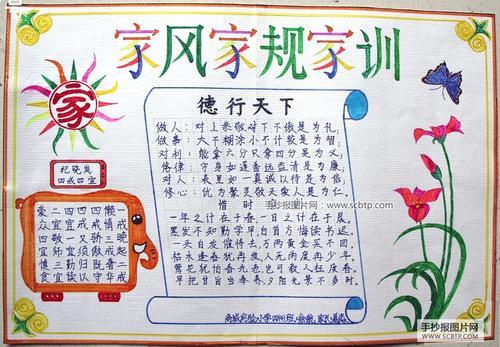 家风家规家训
家
纪晓岚
四戒四宜
一戒晚起二戒
懒惰三戒奢华
四戒骄傲既守
四戒又须归以
四宜一宜勤读
二宜敬师三宜
爱众四宜慎食
德行天下
做人：对上恭敬对下不傲是为礼，
做事：大不糊涂小不计较是为智；
对利：能拿六分只拿四分是为义；
恪律：守身如莲香远益清是为廉；
对人：表里如一真诚以待是为信；
修心：优为聚灵敬天爱人是为仁。
惜时
手抄报图片网 - www.scbtp.com
一年之计在于春一日之计在于晨
黑发不知勤学早白首方悔读书迟
一头白发催将去万两黄金买不回
枯木逢春犹再发人无两度再少年
莺花犹怕春光老 可教人枉度春
早把甘旨当奉养夕阳光景不多时
实验小学
手抄报图片网
WWW.SCBTP.COM